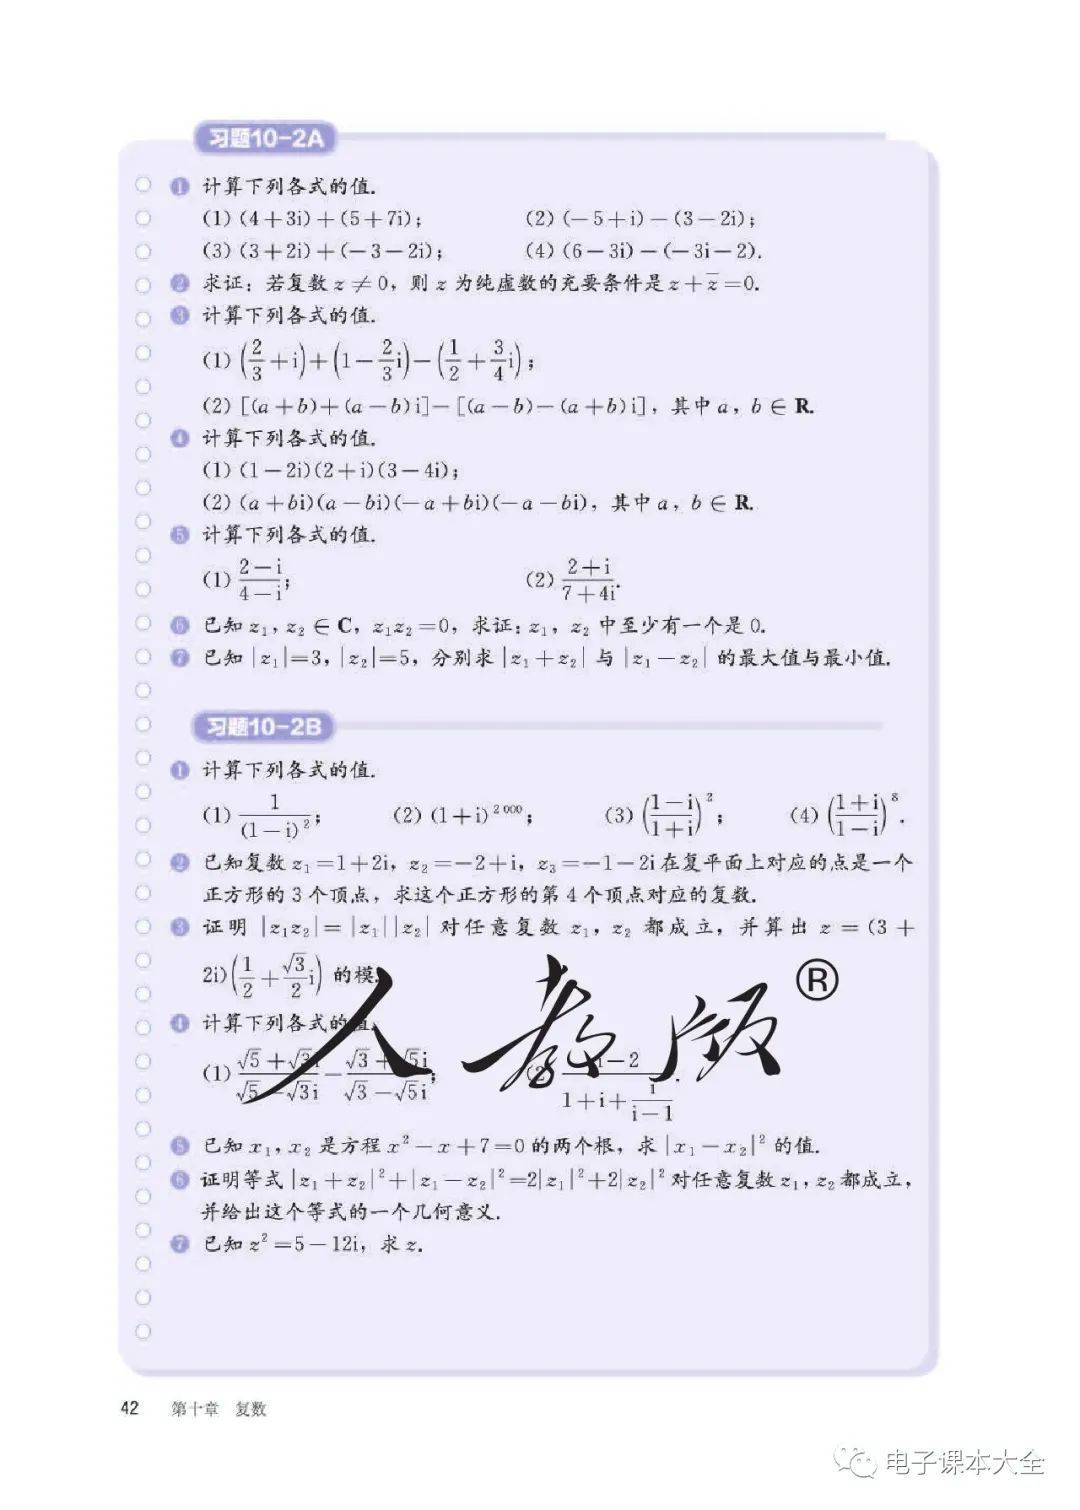 习题10-2A
1 计算下列各式的值.
(1) (4+3i)+(5+7i); (2) (-5+i)-(3-2i);
(3) (3+2i)+(-3-2i); (4) (6-3i)-(-3i-2).
2 求证：若复数 z≠0，则 z 为纯虚数的充要条件是 z+z̅=0.
3 计算下列各式的值.
(1) (2/3+i)+(1-2/3i)-(1/2+3/4i);
(2) [(a+b)+(a-b)i]-[(a-b)-(a+b)i]，其中 a，b∈R.
4 计算下列各式的值.
(1) (1-2i)(2+i)(3-4i);
(2) (a+bi)(a-bi)(-a+bi)(-a-bi)，其中 a，b∈R.
5 计算下列各式的值.
(1) (2-i)/(4-i); (2) (2+i)/(7+4i).
6 已知 z₁，z₂∈C，z₁z₂=0，求证：z₁，z₂ 中至少有一个是 0.
7 已知 |z₁|=3，|z₂|=5，分别求 |z₁+z₂| 与 |z₁-z₂| 的最大值与最小值.
习题10-2B
1 计算下列各式的值.
(1) 1/(1-i)²; (2) (1+i)²⁰⁰⁰; (3) ((1-i)/(1+i))³; (4) ((1+i)/(1-i))⁸.
2 已知复数 z₁=1+2i，z₂=-2+i，z₃=-1-2i 在复平面上对应的点是一个
正方形的 3 个顶点，求这个正方形的第 4 个顶点对应的复数.
3 证明 |z₁z₂|=|z₁||z₂| 对任意复数 z₁，z₂ 都成立，并算出 z=(3+
2i)(1/2+√3/2i) 的模.
人教版®
4 计算下列各式的值.
(1) (√5+√3i)/(√5-√3i)-(√3+√5i)/(√3-√5i); (2) (i-2)/(1+i+i/(i-1)).
5 已知 x₁，x₂ 是方程 x²-x+7=0 的两个根，求 |x₁-x₂|² 的值.
6 证明等式 |z₁+z₂|²+|z₁-z₂|²=2|z₁|²+2|z₂|² 对任意复数 z₁，z₂ 都成立，
并给出这个等式的一个几何意义.
7 已知 z²=5-12i，求 z.
42 第十章 复数
电子课本大全